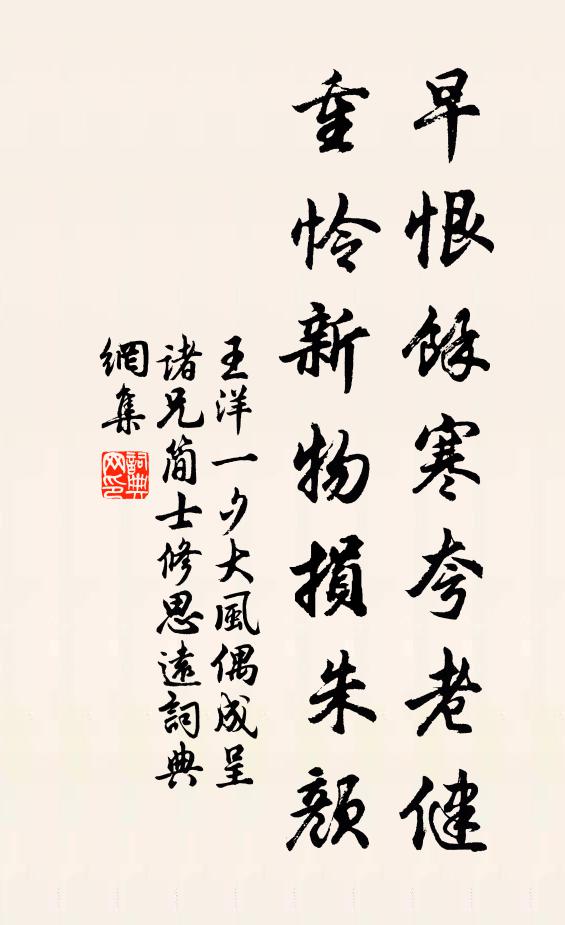 早恨餘寒夸老健
重怜新物損朱顏
王洋一夕大風偶成呈
諸兄簡士修思遠詞典
網集
詞典網印